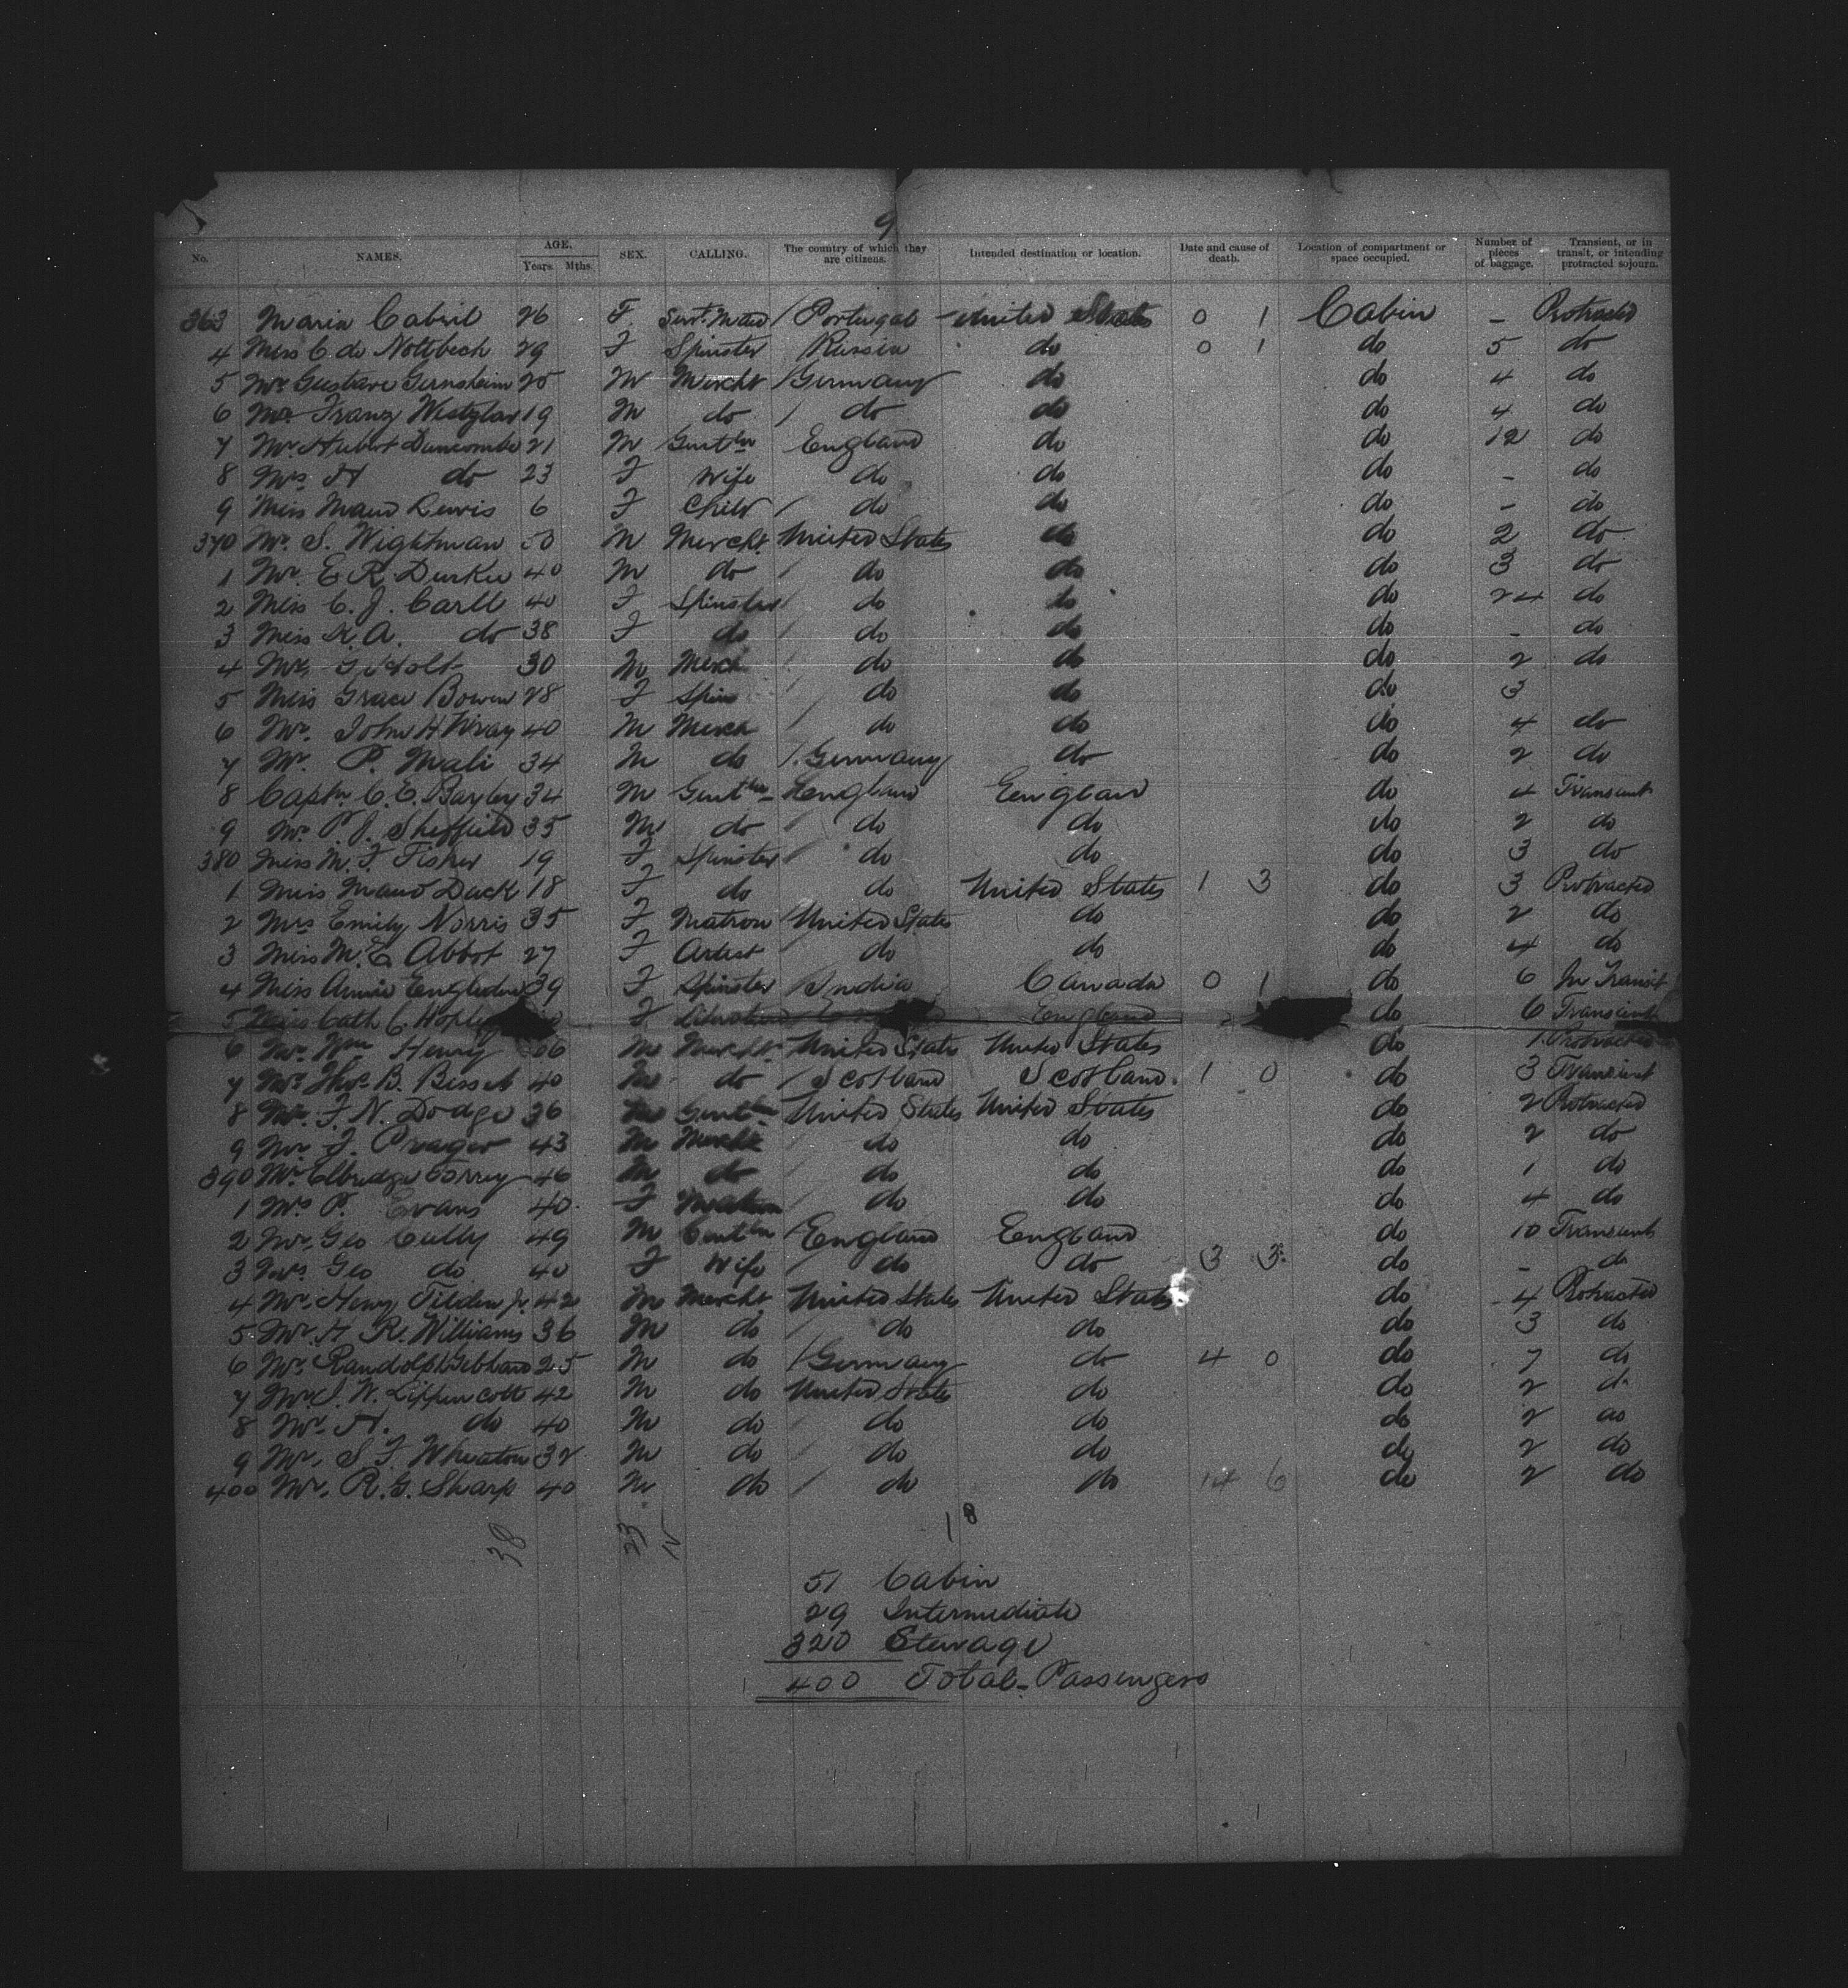 9
No. NAMES. AGE. Years. Mths. SEX. CALLING. The country of which they are citizens. Intended destination or location. Date and cause of death. Location of compartment or space occupied. Number of pieces of baggage. Transient, or in transit, or intending protracted sojourn.
363 Maria Cabril 26 F Servt. Maid / Portugal United States 0 1 Cabin - Protracted
4 Miss C. de Nottbeck 29 F Spinster Russia do 0 1 do 5 do
5 Mr. Gustave Gernsheim 25 M Mercht / Germany do do 4 do
6 Mr. Franz 19 M do / do do do 4 do
7 Mr. Hubert Duncombe 21 M Gentln England do do 12 do
8 Mrs. H do 23 F Wife do do do - do
9 Miss Maud Lewis 6 F Child / do do do - do
370 Mr. S. Wightman 50 M Mercht. United States do do 2 do
1 Mr. E. R. Durkee 40 M do / do do do 3 do
2 Miss C. J. Carll 40 F Spinster / do do do 24 do
3 Miss K. A. do 38 F do / do do do - do
4 Mr. G Holt 30 M Merch / do do do 2 do
5 Miss Grace Bowen 28 F Spin / do do do 3
6 Mr. John H Wray 40 M Merch / do do do 4 do
7 Mr. P. Mali 34 M do / Germany do do 2 do
8 Captn. C. E. Bayley 34 M Gentln England England do 4 Transient
9 Mr. P. J. Sheffield 35 M do / do do do 2 do
380 Miss M. F. Fisher 19 F Spinster / do do do 3 do
1 Miss Maud Duck 18 F do do United States 1 3 do 3 Protracted
2 Mrs Emily Norris 35 F Matron United States do do 2 do
3 Miss M. E. Abbot 27 F Artist / do do do 4 do
4 Miss Annie 39 F Spinster / India Canada 0 1 do 6 In Transit
5 Miss Cath C. F England do 6 Transient
6 Mr. Wm Henry M Mercht. United States United States do 1 Protracted
7 Mr. Thos. B. Bisset 40 M do / Scotland Scotland. 1 0 do 3 Transient
8 Mr. F. N. Dodge 36 M Gentln United States United States do 2 Protracted
9 Mr. J. Prager 43 M Mercht / do do do 2 do
390 Mr. Elbridge Torrey 46 M do / do do do 1 do
1 Mrs P. Evans 40 F Matron / do do do 4 do
2 Mr. Geo Cully 49 M Gentln / England England do 10 Transient
3 Mrs Geo do 40 F Wife / do do 3 3 do - do
4 Mr. Henry Tilden Jr. 42 M Mercht. United States United States do 4 Protracted
5 Mr. H. R. Williams 36 M do / do do do 3 do
6 Mr. Randolph Gebhard 25 M do / Germany do 4 0 do 7 do
7 Mr. J. W. Lippencott 42 M do United States do do 2 do
8 Mr. H. do 40 M do / do do do 2 do
9 Mr. S. F. Wheaton 32 M do / do do do 2 do
400 Mr. R. G. Sharp 40 M do / do do 14 6 do 2 do
38 23 18
51 Cabin
29 Intermediate
320 Steerage
400 Total Passengers